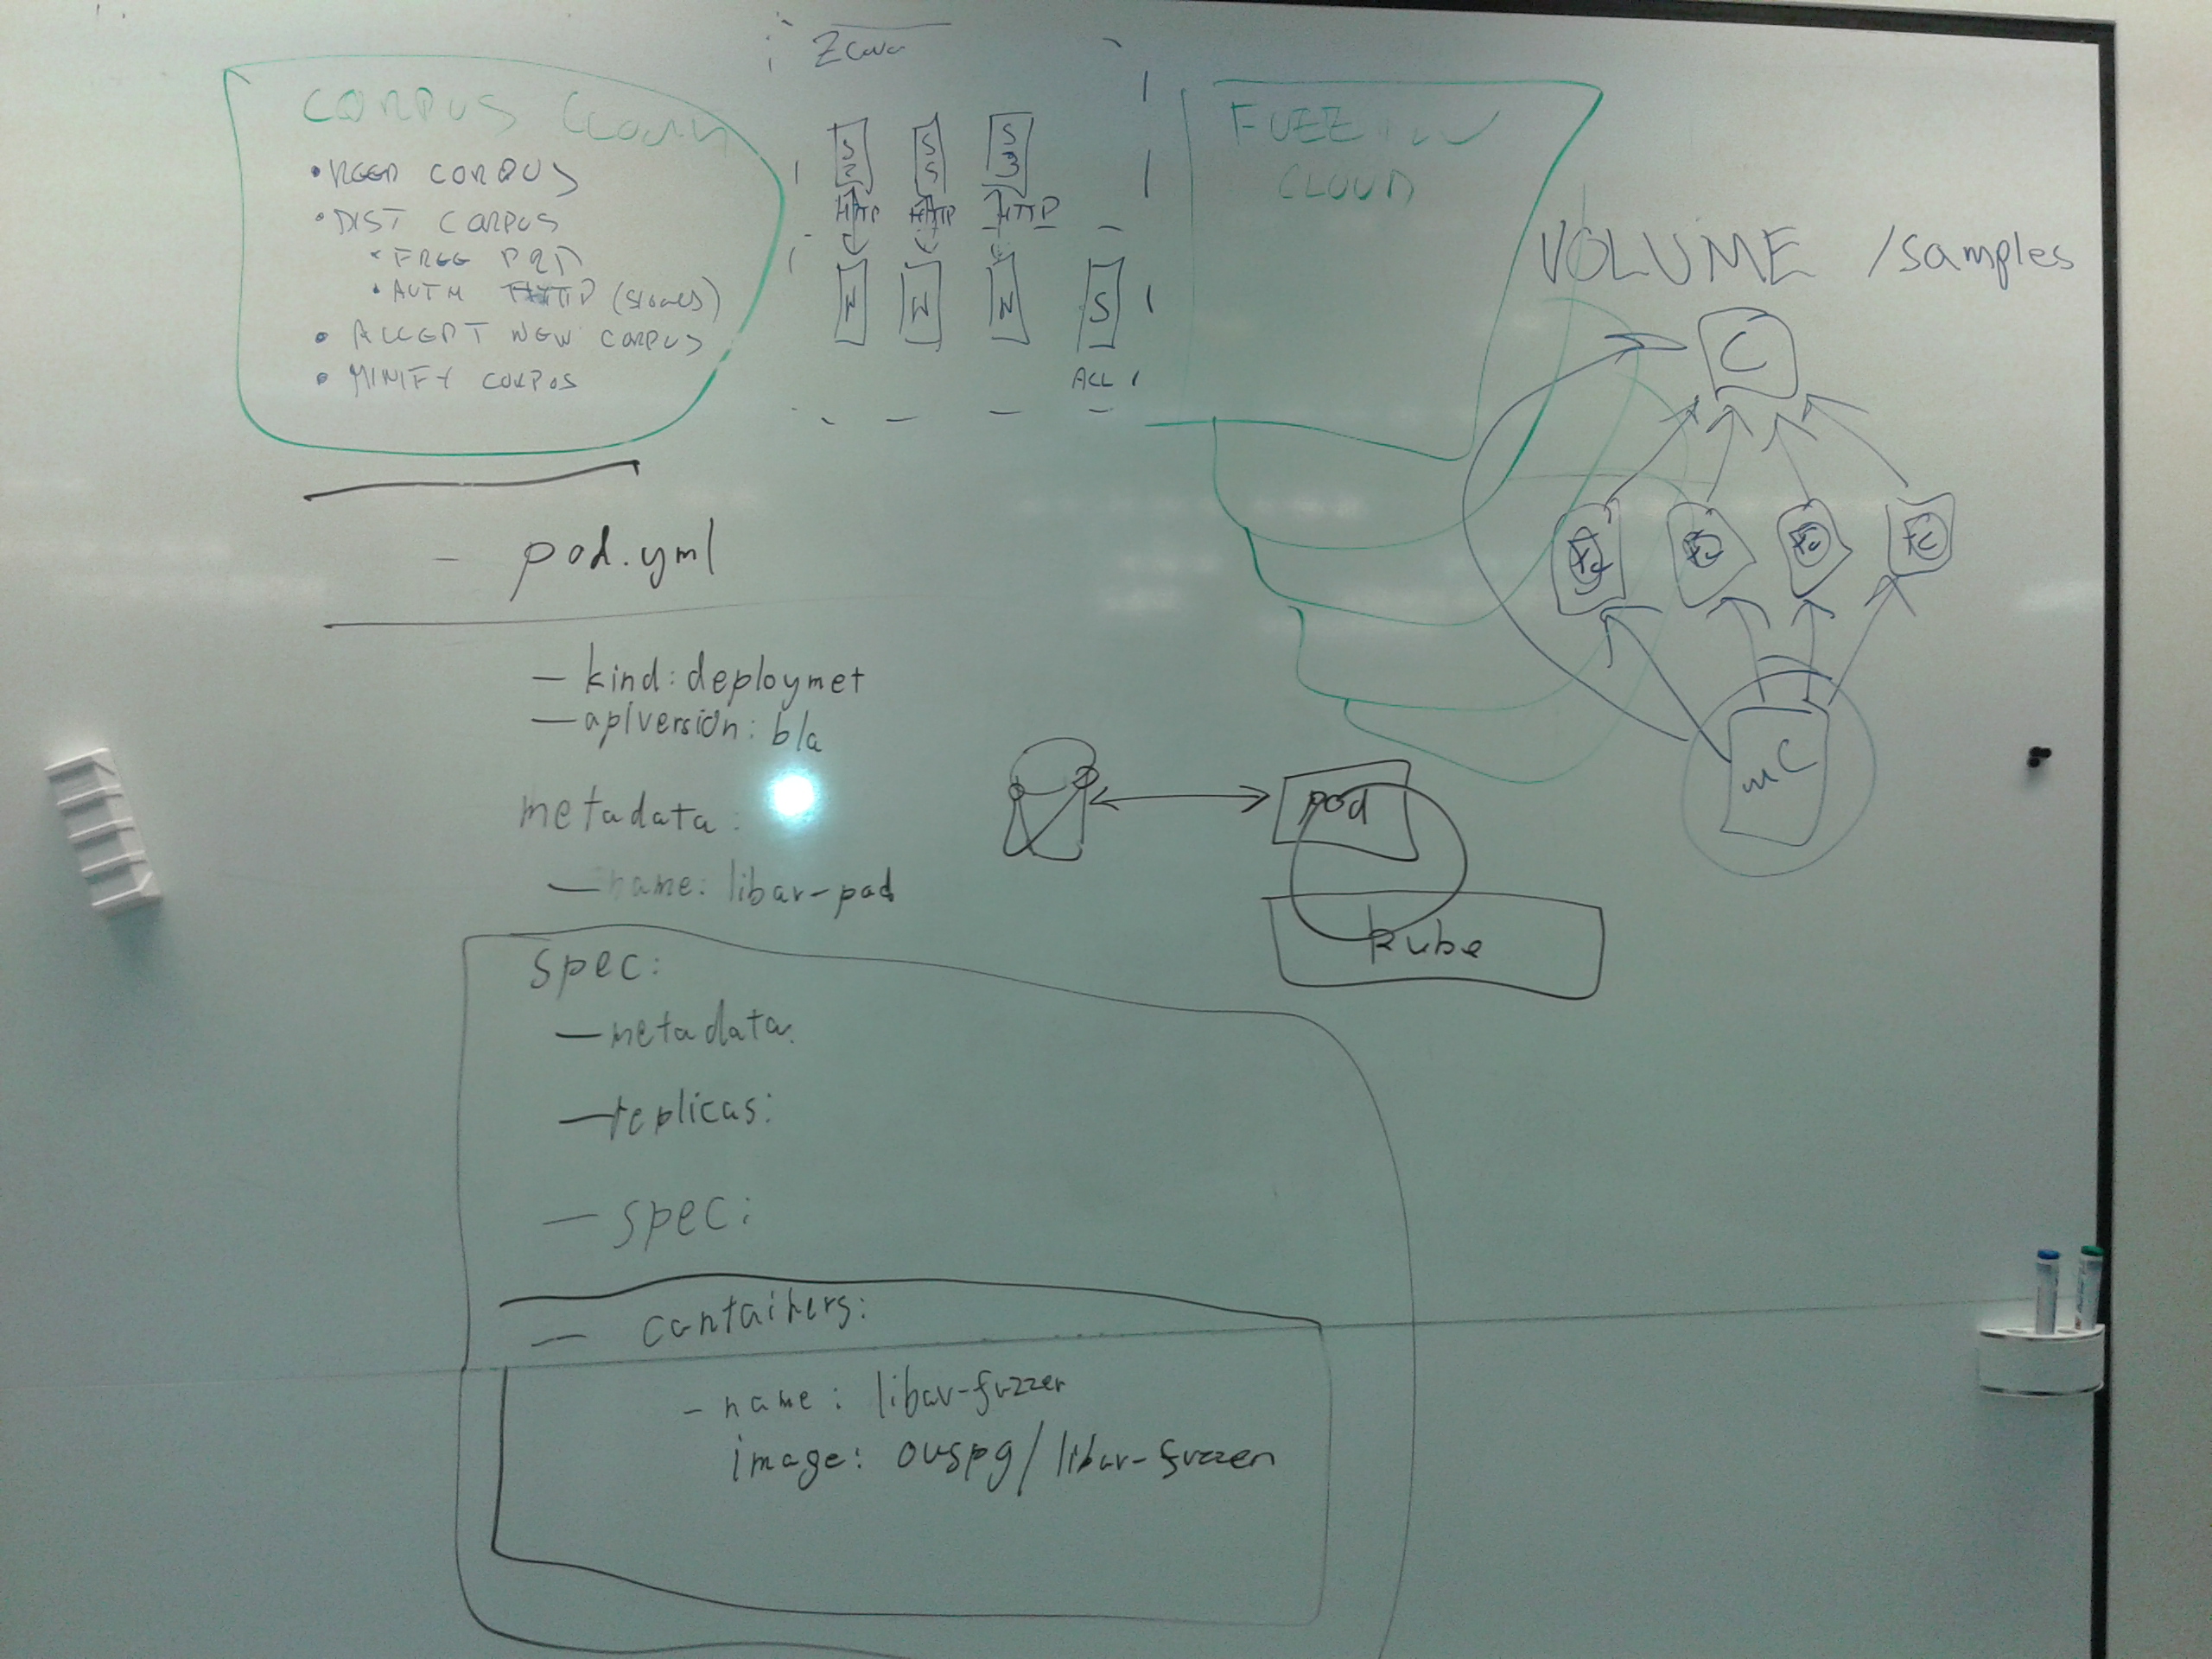 CORPUS
• KEEP CORPUS
• DIST CORPUS
• FREE P2P
• AUTH HTTP (signed)
• ACCEPT NEW CORPUS
• MINIFY CORPUS
S S S
S 3
HTTP HTTP HTTP
W W W S
ALL
CLOUD
VOLUME /samples
C
fc fc fc fc
mC
- pod.yml
- kind: deploymet
- apiversion: bla
metadata:
- name: libav-pod
pod
kube
spec:
- metadata:
- replicas:
- spec:
- containers:
- name: libav-fuzzer
image: ouspg/libav-fuzzer